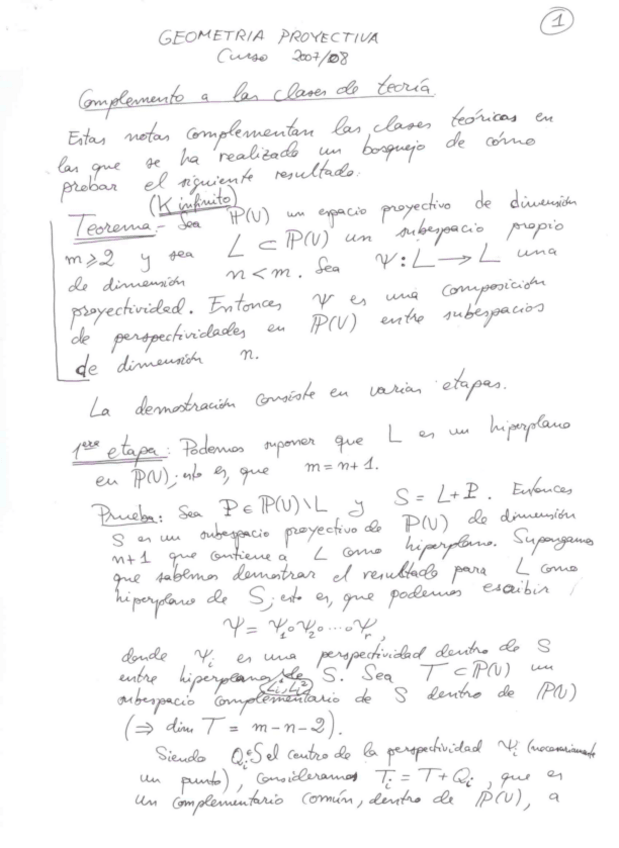 1
GEOMETRIA PROYECTIVA
Curso 2007/08
Complemento a las clases de teoría
Estas notas complementan las clases teóricas en
las que se ha realizado un bosquejo de cómo
probar el siguiente resultado:
(K infinito)
Teorema.- Sea ℙ(V) un espacio proyectivo de dimensión
m ⩾ 2 y sea L ⊂ ℙ(V) un subespacio propio
de dimensión n < m. Sea Ψ: L → L una
proyectividad. Entonces Ψ es una composición
de perspectividades en ℙ(V) entre subespacios
de dimensión n.
La demostración consiste en varias etapas.
1ere etapa: Podemos suponer que L es un hiperplano
en ℙ(V); esto es, que m = n+1.
Prueba: Sea P ∈ ℙ(V)\L y S = L+P. Entonces
S es un subespacio proyectivo de ℙ(V) de dimensión
n+1 que contiene a L como hiperplano. Supongamos
que sabemos demostrar el resultado para L como
hiperplano de S; esto es, que podemos escribir
Ψ = Ψ₁∘Ψ₂∘⋯∘Ψᵣ,
donde Ψᵢ es una perspectividad dentro de S
entre hiperplanos Lᵢ¹, Lᵢ² de S. Sea T ⊂ ℙ(V) un
subespacio complementario de S dentro de ℙ(V)
(⇒ dim T = m-n-2).
Siendo Qᵢ∈S el centro de la perspectividad Ψᵢ (necesariamente
un punto), consideramos Tᵢ = T+Qᵢ, que es
un complementario común, dentro de ℙ(V), a